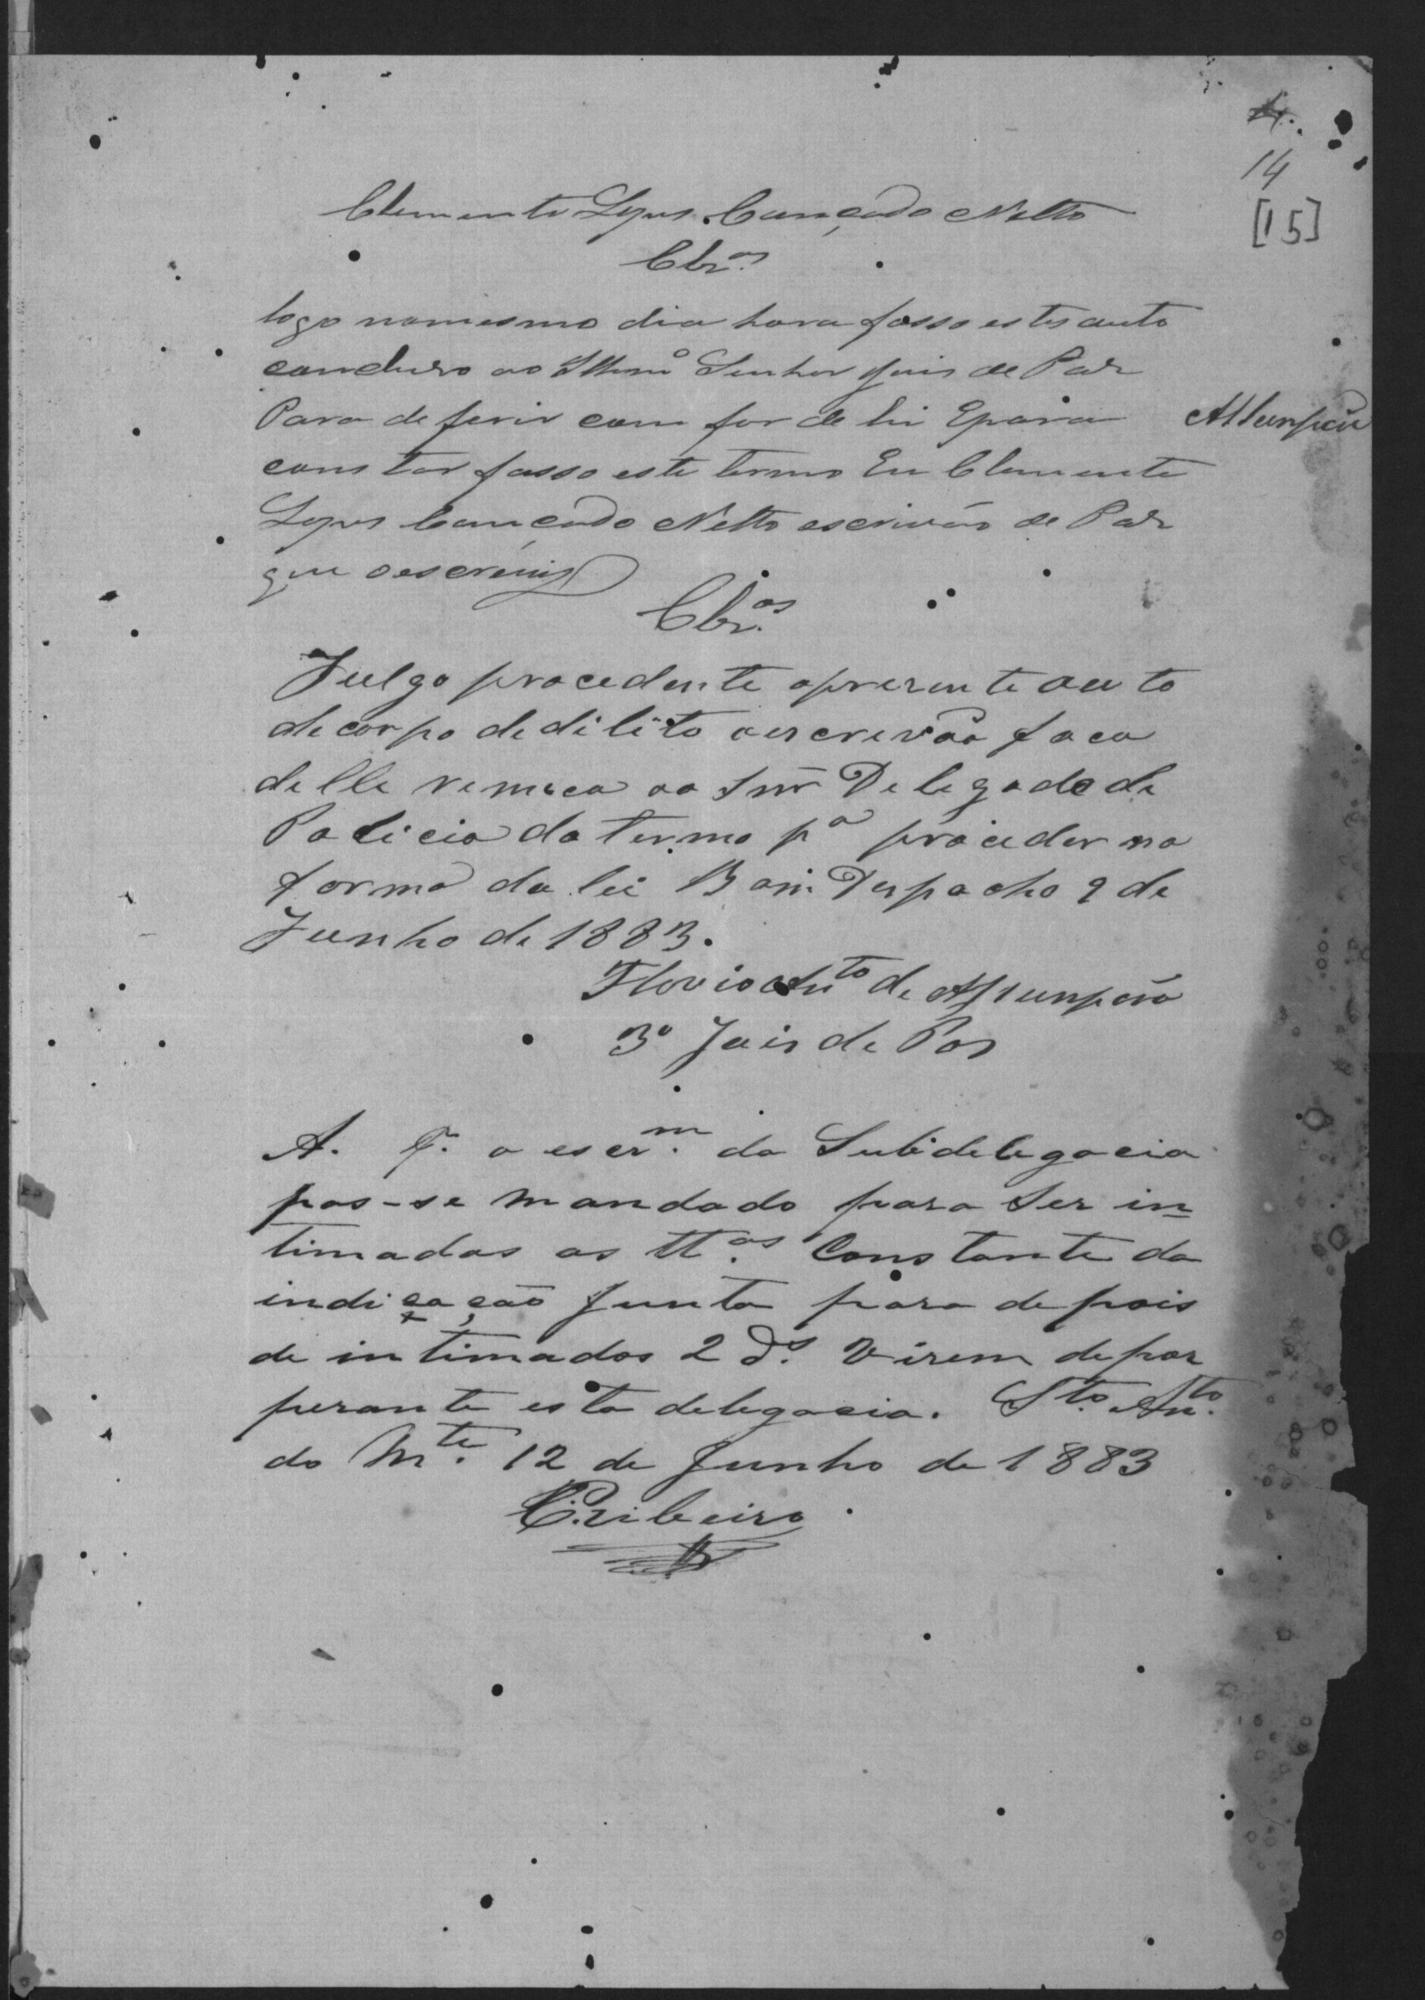 4.
14
[15]
Clemente Lopes Cançado Netto
Clzos.
logo nomesmo dia hora fasso estes auto
concluzo ao Illmo Senhor Juis de Paz
Para deferir com for de lei Epara
Assunpcão
constar fasso este termo Eu Clemente
Lopes Cançado Netto escrivão de Paz
que oescrevij
Clzos.
Julgo procedente opresente auto
decorpo dedilito oescrevão faca
delle remeca ao Snr Delegado de
Policia do termo pa proceder na
forma da lei Bom Despacho 9 de
Junho de 1883.
Flavio Anto de Assunpcão
3o Juis de Pas
A. F. o escrm. da Subdelegacia
pas-se mandado para ser in=
timadas as ttas. Constante da
indicacão junta para depois
de intimados 2 ds. Virem depor
perante esta delegacia. Sto. Anto.
do Mte. 12 de Junho de 1883
C. Ribeiro